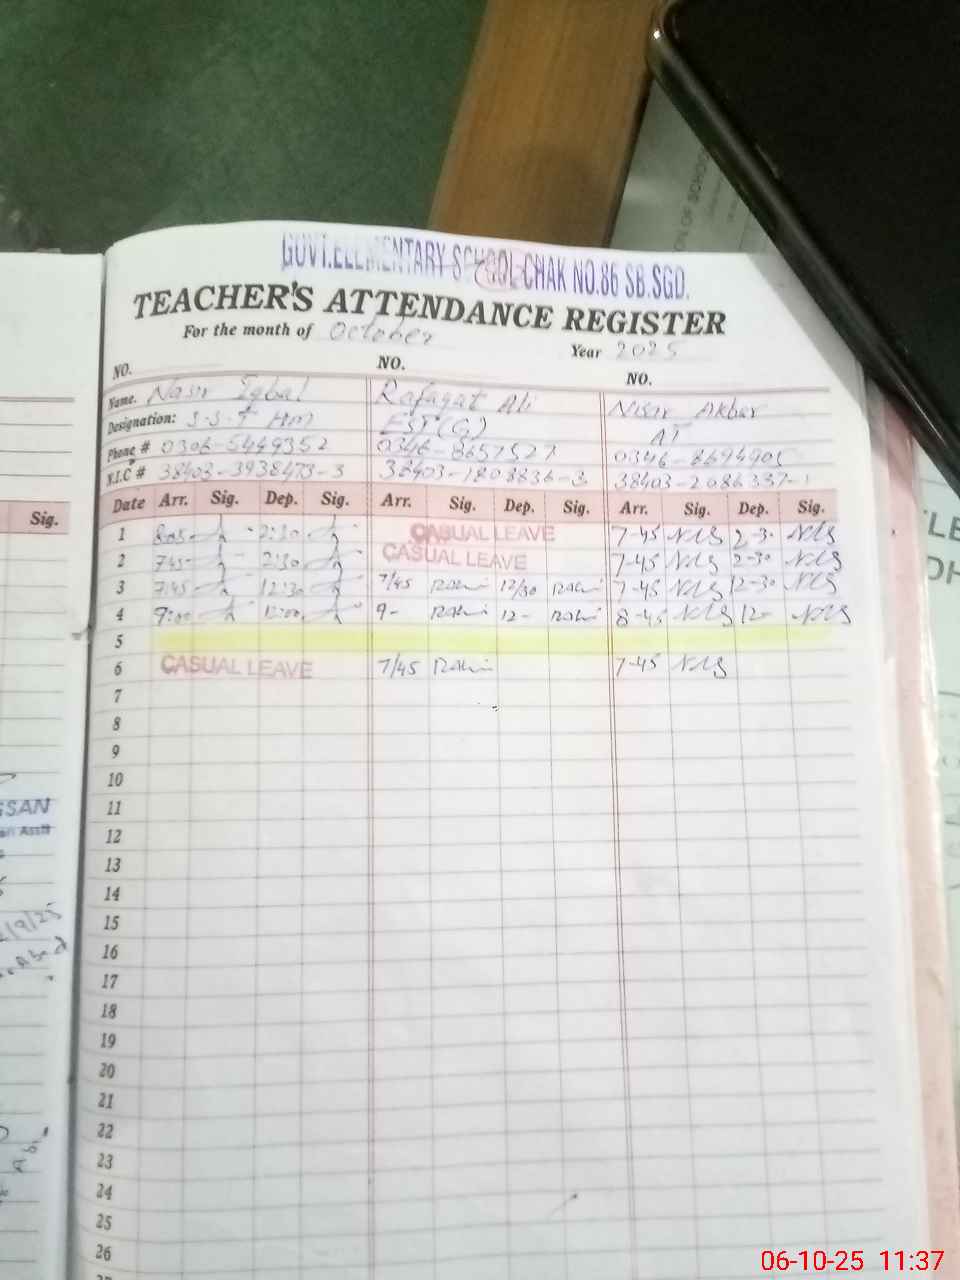 GOVT.ELEMENTARY SCHOOL CHAK NO.86 SB.SGD.
TEACHER'S ATTENDANCE REGISTER
For the month of October Year 2025
NO. NO. NO.
Name. Nasir Iqbal Rafaqat Ali Nisar Akbar
Designation: S-S-T HM EST(G) AT
Phone # 0306-5449352 0346-8657527
N.I.C # 38403-3938473-3 38403-1808836-3
Date Arr. Sig. Dep. Sig. Arr. Sig. Dep. Sig. Arr. Sig. Dep. Sig.
1 8:05 2:30 CASUAL LEAVE 7-45 2-30
2 7:45 2:30 CASUAL LEAVE 7-45 2-30
3 7:45 12:30 7/45 12/30 7-45 12-30
4 9:00 12:00 9- 12- 8-45 12-
5
6 CASUAL LEAVE 7/45 7-45
7
8
9
10
11
12
13
14
15
16
17
18
19
20
21
22
23
24
25
26
Sig.
SSAN
06-10-25 11:37